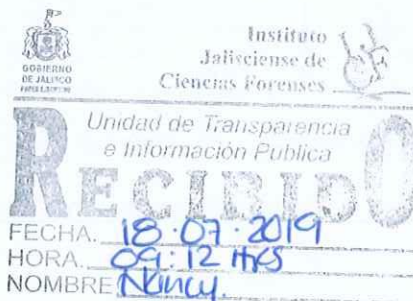 GOBIERNO
DE JALISCO
Instituto
Jalisciense de
Ciencias Forenses
Unidad de Transparencia
e Información Publica
RECIBIDO
FECHA. 18.07.2019
HORA. 09:12 Hrs
NOMBRE Nancy.